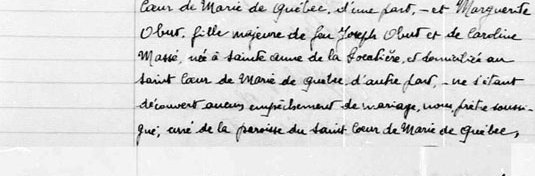 Cœur de Marie de Québec, d'une part, - et Marguerite
Obert, fille majeure de feu Joseph Obert et de Caroline
Massé, née à Sainte Anne de la Pocatière, et domiciliée au
Saint Cœur de Marie de Québec d'autre part, - ne s'étant
découvert aucun empêchement de mariage, nous, prêtre soussi-
gné, curé de la paroisse du Saint Cœur de Marie de Québec,